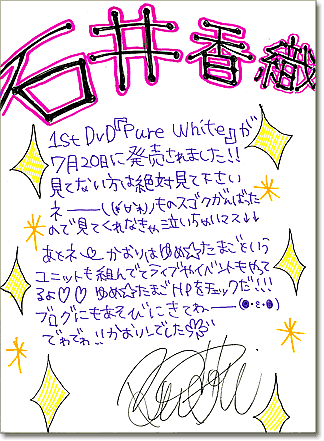 石井香織
1st DVD『Pure White』が
7月20日に発売されました!!
見てない方は絶対見て下さい
ネーーー(≧∀≦)ノものスゴクがんばった
ので見てくれなきゃ泣いちゃいマス↓↓
あとネ かおりはゆめ☆たまごという
ユニットも組んでてライブやイベントもやって
るよ♡♡ ゆめ☆たまごHPをチェックだ!!!
ブログにもあそびにきてねーー(●･ε･●)
でわでわ!!かおりんでした